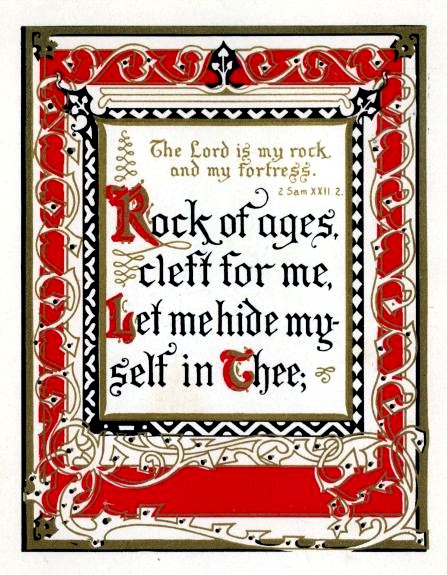 The Lord is my rock
and my fortress.
2 Sam XXII 2.
Rock of ages,
cleft for me,
Let me hide my-
self in Thee;